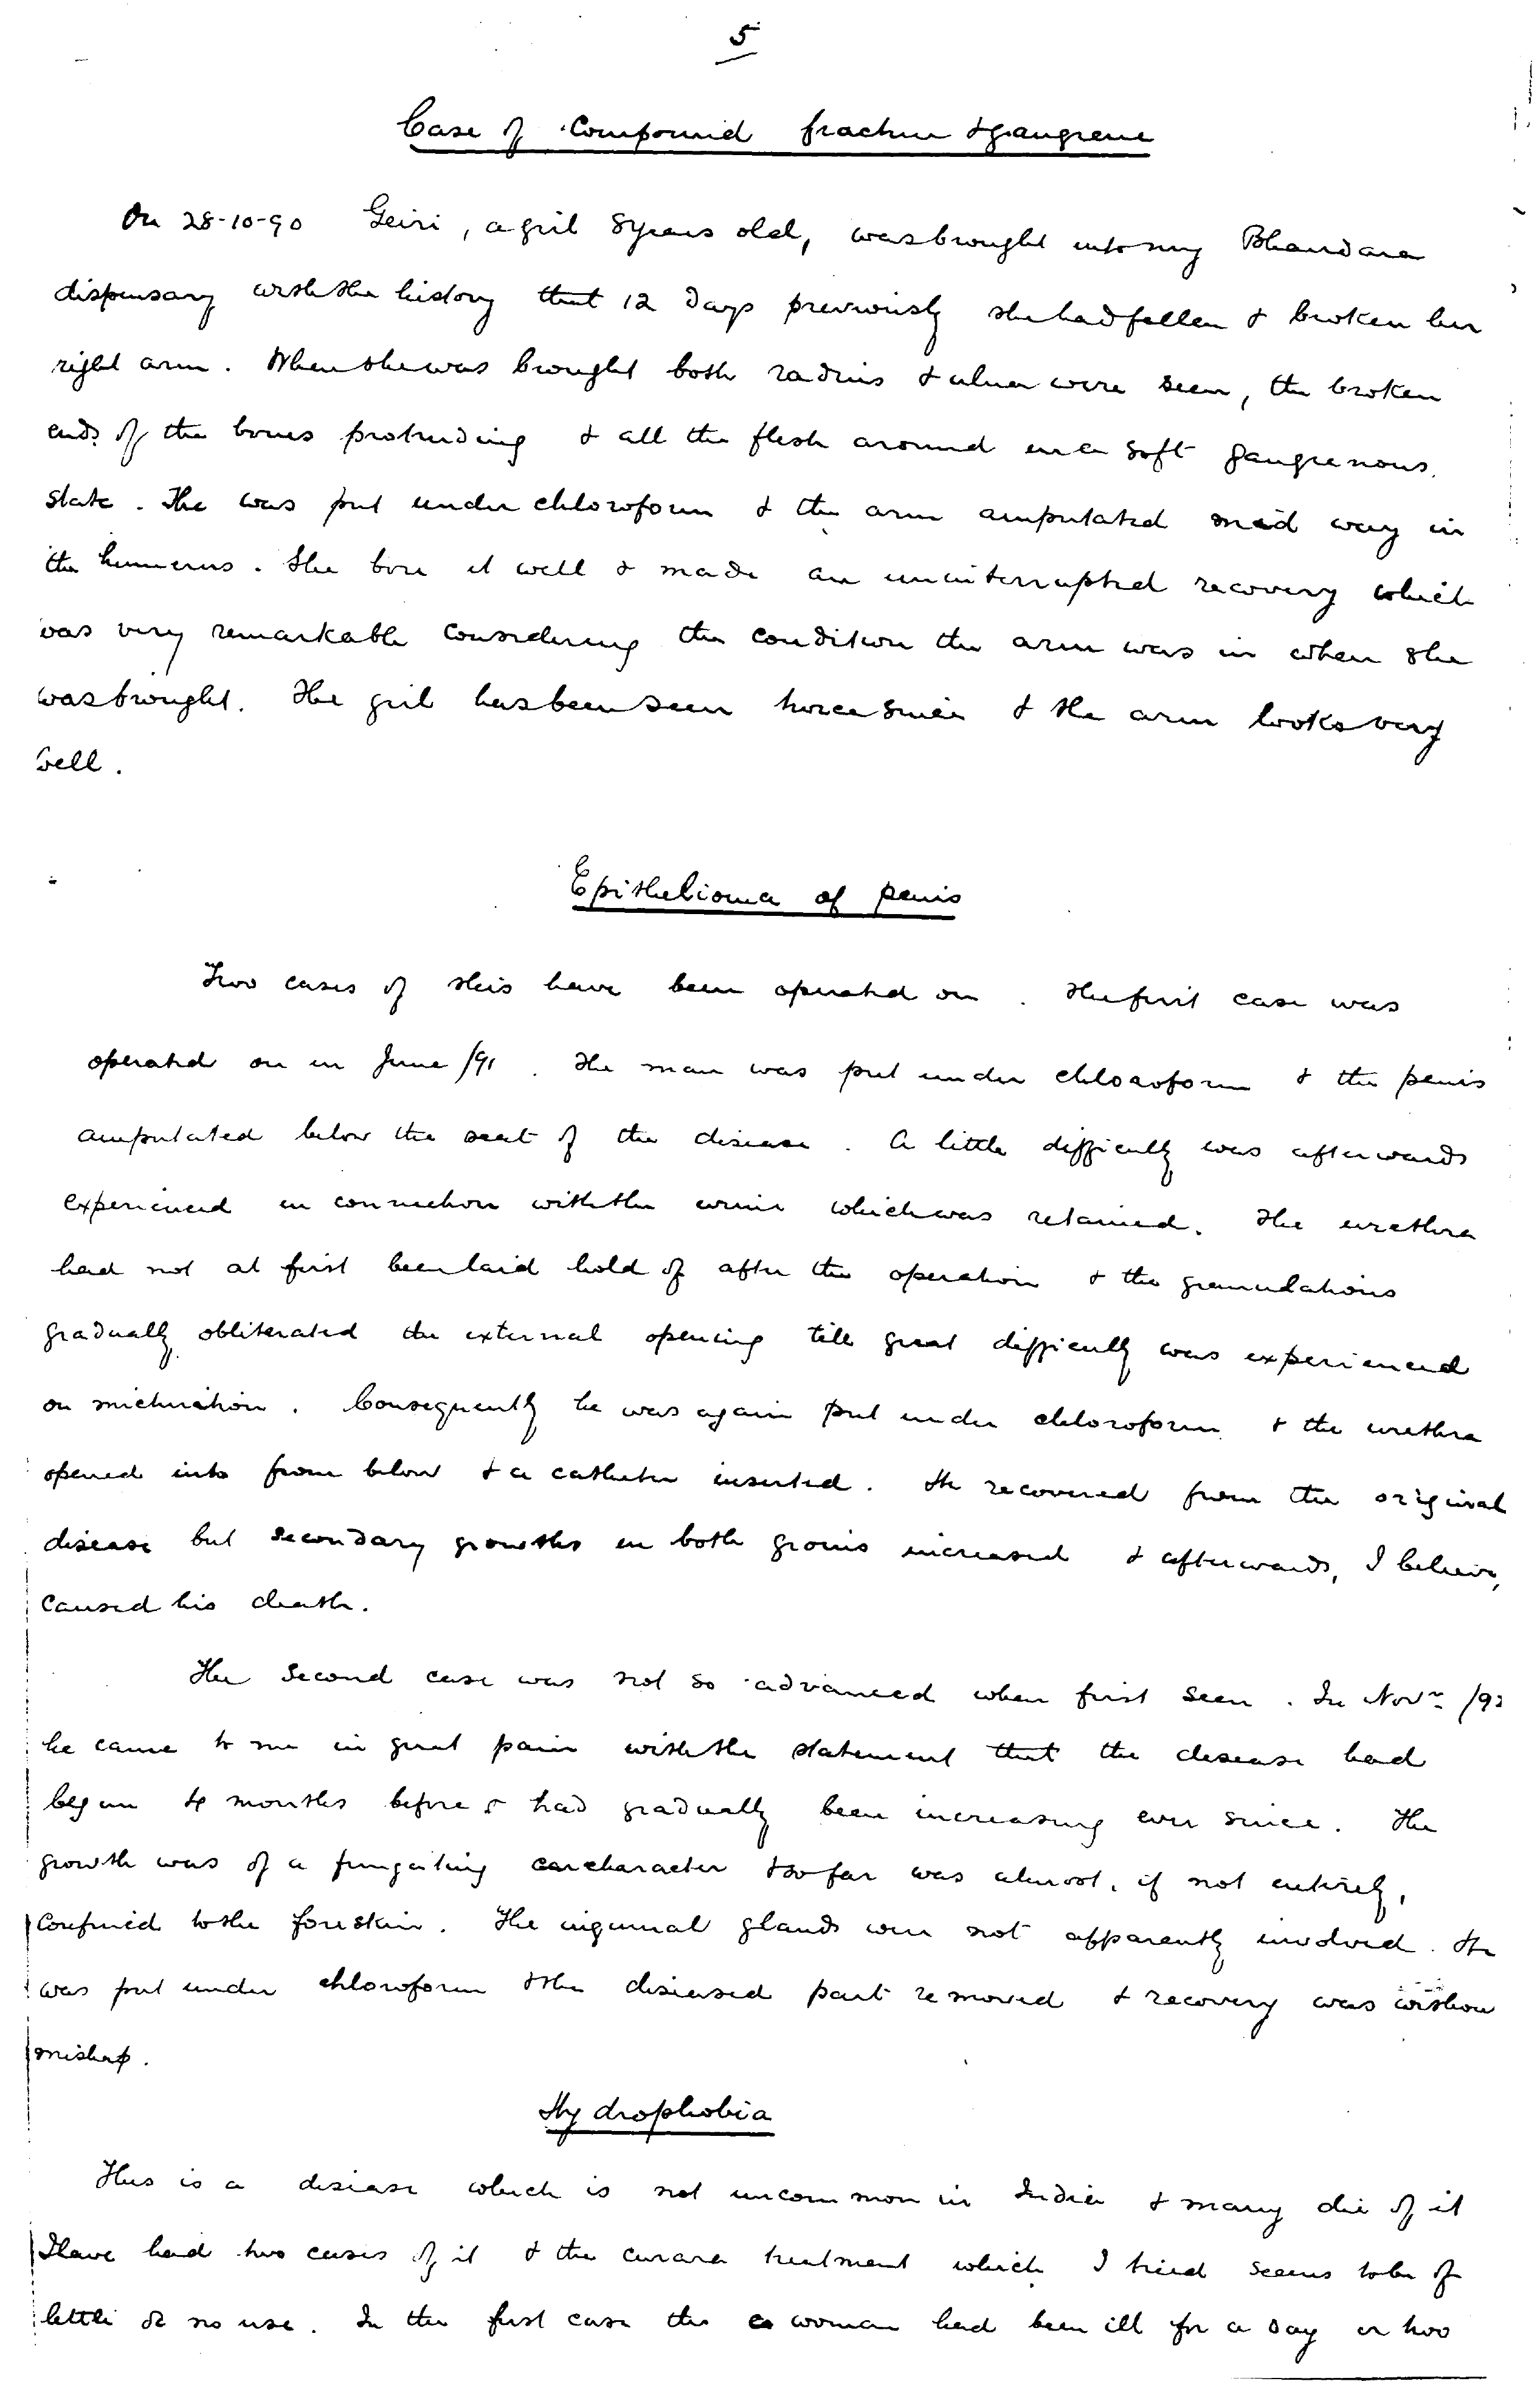 5
Case of Compound fracture & gangrene
On 28-10-90 Geiri, a girl 8 years old, was brought into my Bhandara
dispensary with the history that 12 days previously she had fallen & broken her
right arm. When she was brought both radius & ulna were seen, the broken
ends of the bones protruding & all the flesh around in a soft gangrenous
state. She was put under chloroform & the arm amputated mid way in
the humerus. She bore it well & made an uninterrupted recovery which
was very remarkable considering the condition the arm was in when she
was brought. The girl has been seen twice since & the arm looks very
well.
Epithelioma of penis
Two cases of this have been operated on. The first case was
operated on in June /91. The man was put under chloroform & the penis
amputated below the seat of the disease. A little difficulty was afterwards
experienced in connection with the urine which was retained. The urethra
had not at first been laid hold of after the operation & the granulations
gradually obliterated the external opening till great difficulty was experienced
on micturition. Consequently he was again put under chloroform & the urethra
opened into from below & a catheter inserted. He recovered from the original
disease but secondary growths in both groins increased & afterwards, I believe,
caused his death.
The second case was not so advanced when first seen. In Novr /92
he came to me in great pain with the statement that the disease had
begun 4 months before & had gradually been increasing ever since. The
growth was of a fungating character & so far was almost, if not entirely,
confined to the foreskin. The inguinal glands were not apparently involved. He
was put under chloroform & the diseased part removed & recovery was withou
mishap.
Hydrophobia
This is a disease which is not uncommon in India & many die of it
I have had two cases of it & the curara treatment which I tried seems to be of
little or no use. In the first case the woman had been ill for a day or two